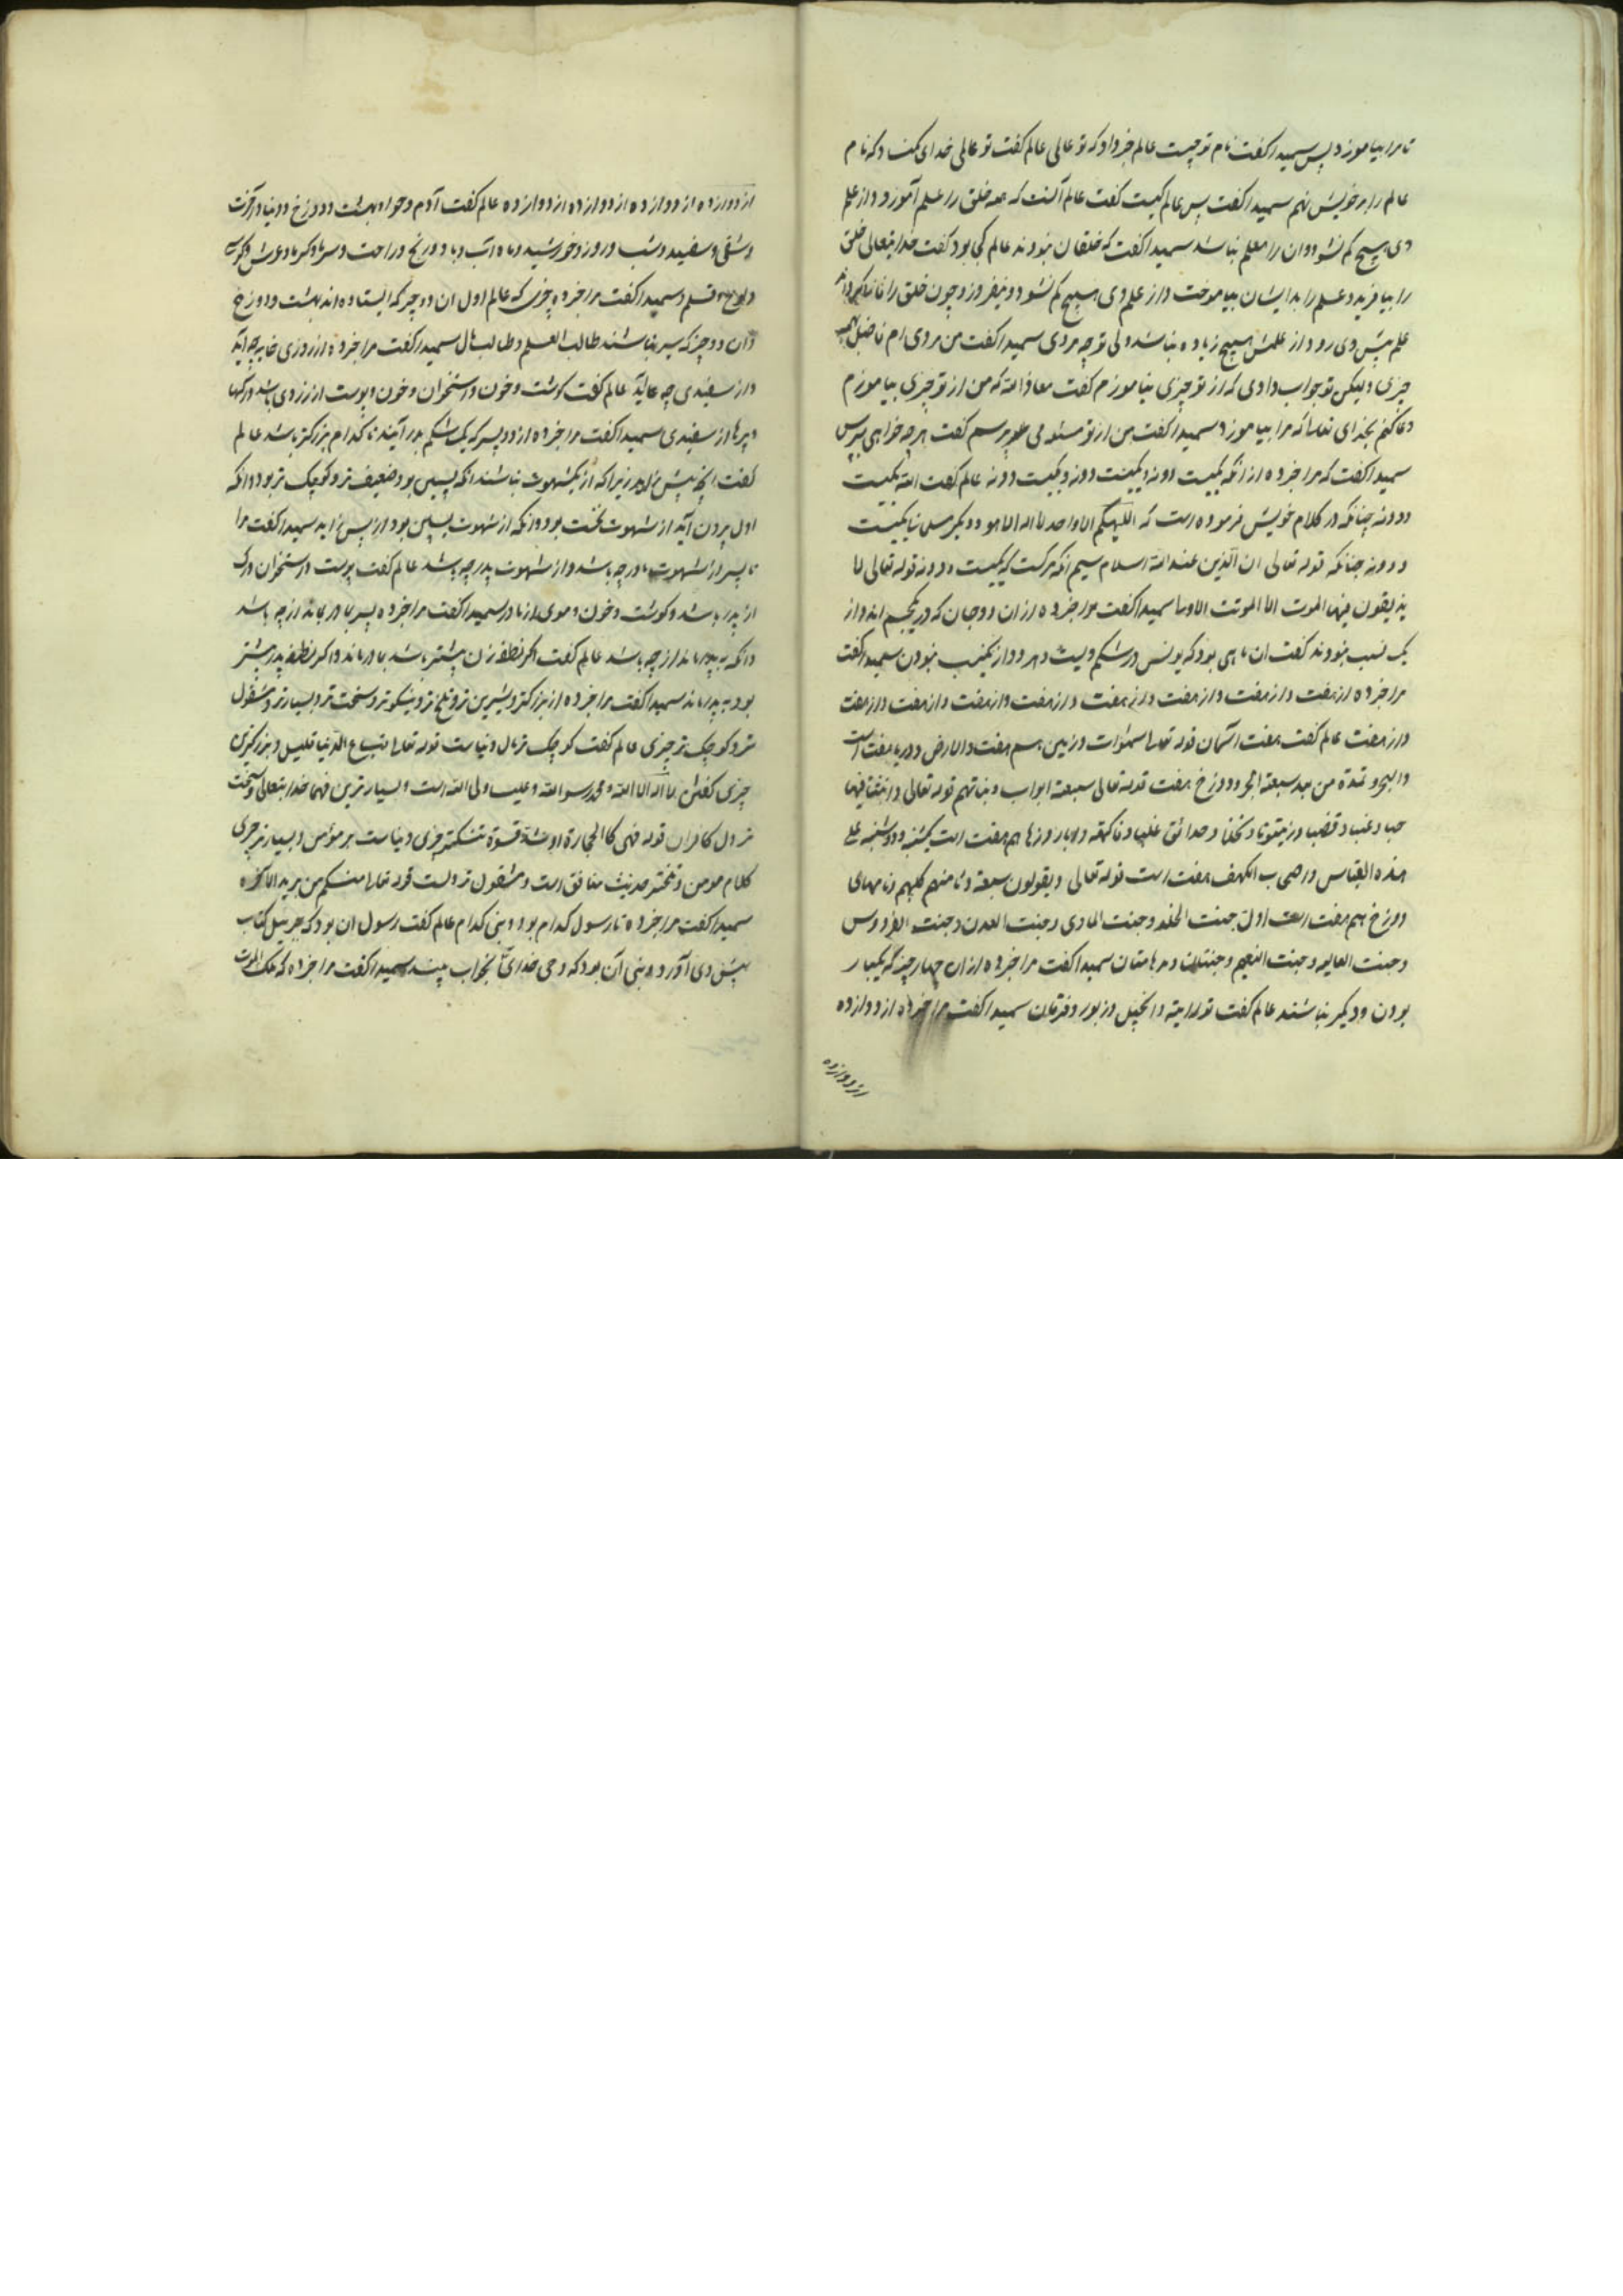 تا مرا بیاموزد پس سمیدا کفت نام تو چیست عالم خبر داد که تو عالی عالم کفت تو عالمی خدای کند و که نام
عالم را بر خویش نهم سمیدا کفت پس عالم کیست کفت عالم آنست که همه خلق را علم آموزد و از علم
وی هیچ کم نشود و ان را معلم نباشد سمیدا کفت که خلقان نبودند عالم کی بود کفت خدایتعالی خلق
را بیافرید و علم را بدایشان بیاموخت و از علم وی هیچ کم نشود و نیفزود و چون خلق را فانی
علم پیش وی رود از علمش هیچ زیاده نباشد ولی تو چه مردی سمیدا کفت من مردی ام فاضل
چیزی ولیکن تو جواب دادی که از تو چیزی بیاموزم کفت معاذ الله که من از تو چیزی بیاموزم
دعا کنم بخدای تعالی که مرا بیاموزد سمیدا کفت من از تو مسئله می پرسم کفت هر چه خواهی بپرس
سمیدا کفت که مرا خبر ده از انکه یکیست دو نه و یکیست دو نه و یکیست دو نه عالم کفت الله یکیست
و دو نه چنانکه در کلام خویش فرموده است که الهکم اله واحد لا اله الا هو و دیکر مسلمانی یکیست
و دو نه چنانکه قوله تعالی ان الذین عند الله اسلام سیم انکه مرکست که یکیست و دو نه قوله تعالی لا
یذیقون فیها الموت الا الموتت الاولیا سمیدا کفت مرا خبر ده از ان دو جان که در یکجسم اند و از
یک نسب نبودند کفت ان ماهی بود که یونس در شکم ویست و هر دو از یکنسب نبودن سمیدا کفت
مرا خبر ده از هفت و از هفت و از هفت و از هفت و از هفت و از هفت و از هفت و از هفت
و از هفت عالم کفت هفت آسمان قوله تعالی سموات و زمین هم هفت و الارض و دریا هفت است
و البحر یمده من بعد سبعة ابحر و دوزخ هفت قوله تعالی سبعة ابواب و نباتهم قوله تعالی و انبتنا فیها
حبا و عنبا و قضبا و زیتونا و نخلا و حدائق غلبا و فاکهة و ابا و روزها هم هفت است یکشنبه و دوشنبه علی
هذه القیاس و اصحاب الکهف هفت است قوله تعالی و یقولون سبعة و ثامنهم کلبهم و نامهای
دوزخ هم هفت است اول جنت الخلد و جنت الماوی و جنت العدن و جنت الفردوس
و جنت العالیه و جنت النعیم و جنتان و مدهامتان سمیدا کفت مرا خبر ده از ان چهار چیز که یکبار
بودن و دیکر نباشند عالم کفت توراییه و انجیل و زبور و فرقان سمیدا کفت مرا خبر ده از دوازده
از دوازده
از دوازده از دوازده از دوازده از دوازده عالم کفت آدم و حوا و بهشت و دوزخ و دنیا و آخرت
و شقی و سفید و شب و روز و خورشید و ماه و آب و باد و رنج و راحت و سرما و کرما و عرش و کرسی
و لوح و قلم و سمیدا کفت مرا خبر ده چون که عالم اول ان دو چیز که ایستاده اند بهشت و دوزخ
و آن دو چیز که سیر نباشند طالب العلم و طالب مال سمیدا کفت مرا خبر ده از زردی خایه چه آید
و از سفیدی چه عاید عالم کفت کوشت و خون و استخوان و خون و پوست از زردی باشد و رکها
و پرها از سفیدی سمیدا کفت مرا خبر ده از دو پسر که یک شکم بدر آیند تا کدام بزرکتر باشد عالم
کفت انچه پیش زاید زیرا که از یکشهوت نباشند انکه پسین بود ضعیف تر و کوچک تر بود و انکه
اول بیرون آید از شهوت نخست بود و انکه از شهوت پسین بود از پس زاید سمیدا کفت مرا
تا پسر از شهوت مادر چه باشد و از شهوت پدر چه باشد عالم کفت پوست و استخوان و رک
از پدر باشد و کوشت و خون و موی از مادر سمیدا کفت مرا خبر ده پسر بمادر ماند از چه باشد
و انکه به پدر ماند از چه باشد عالم کفت اکر نطفه زن پیشتر باشد بمادر ماند و اکر نطفه پدر پیشتر
بود به پدر ماند سمیدا کفت مرا خبر ده از بزرکتر و شیرین تر و تلخ تر و نیکوتر و سخت تر و بسیارتر و مشغول
تر و کوچک تر چیزی عالم کفت کوچک تر مال دنیاست قوله تعالی متاع الدنیا قلیل و بزرکترین
چیزی کفتن لا اله الا الله و محمد رسو الله و علیا ولی الله است و بسیار ترین فهما خدایتعالی و سخت
تر دل کافران قوله فهی کالحجارة او اشد قسوة تنکتر چیزی دنیاست بر مؤمن و بسیار تر چیزی
کلام مومن و حدیث منافق است و مشغول تر ولست قوله تعالی منکم من یرید الاخره
سمیدا کفت مرا خبر ده تا رسول کدام بود و نبی کدام عالم کفت رسول ان بود که جبرییل کتاب
پیش وی آورد و نبی آن بود که وحی خدای بخواب بیند سمیدا کفت مرا خبر ده که ملک الموت